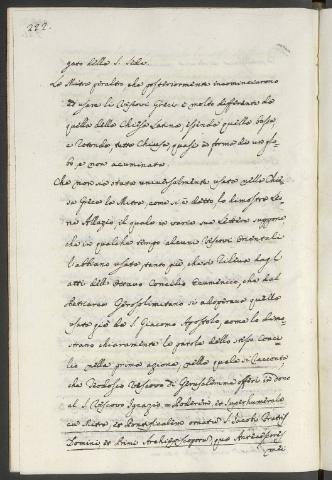 222.
gato della S. Sede.
La Mitra peraltro che posteriormente incominciarono
ad usare li Vescovi Greci è molto differente da
quella della Chiesa Latina, essendo quella bassa,
e rotonda, tutta chiusa, quasi in forma di un
e non acuminata.
Che non sia stata universalmente usata nella Chie-
sa Greca la Mitra, come si è detto lo dimostra Leo-
ne Allazio, il quale in varie sue Lettere suppone
che in qualche tempo alcuni Vescovi Orientali
l'abbiano usata, tanto più che si rileva dagl'
atti dello Ottavo Concilio Ecumenico, che dal
Patriarca Gerosolimitano si adoperava quella
usata già da S. Giacomo Apostolo, come lo dimo-
strano chiaramente le parole dello stesso Conci-
lio, nella prima azione, nella quale si racconta,
che Teodosio Vescovo di Gerusalemme offerì in dono
al S. Vescovo Ignazio = Poderem, et Superhumerale
cum Mitra, et Pontificalem ornatum S. Jacobi Fratris
Domini, et Primi Archiepiscoporum, quo Antecessores
mei